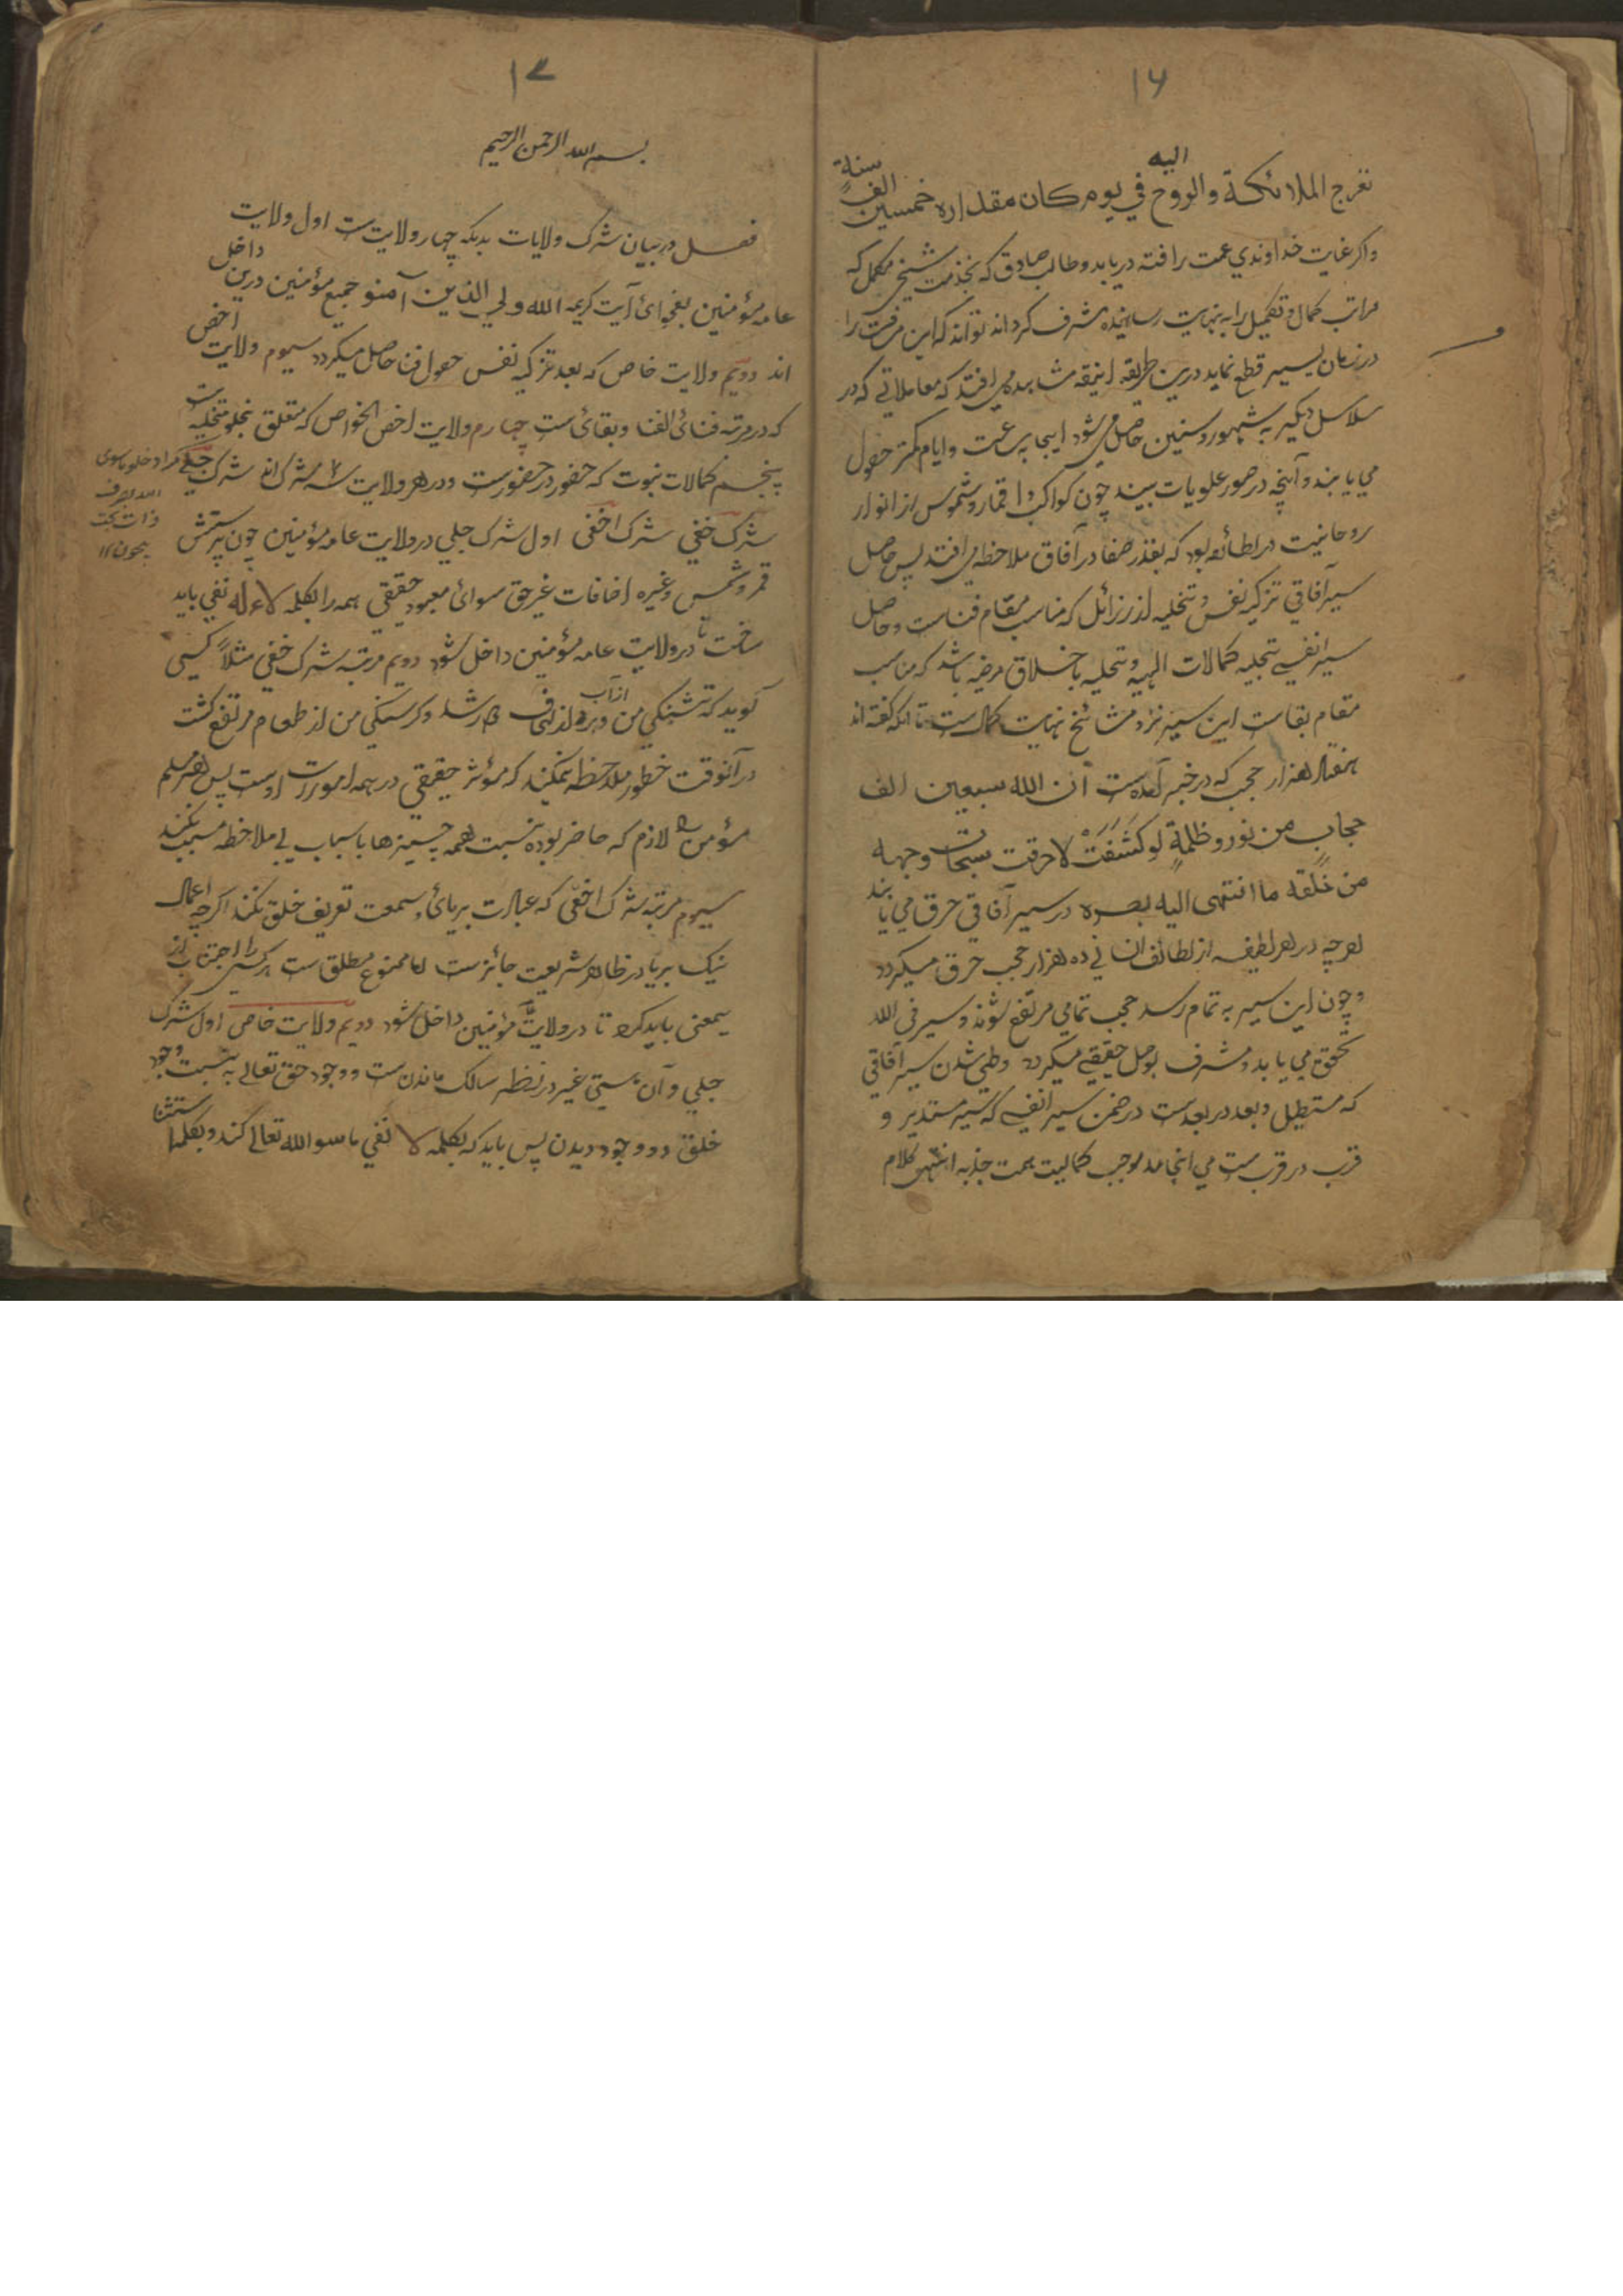 ۱۶
تعرج الملائكة والروح اليه في يوم كان مقداره خمسين الف سنة
واکر غایت خداوندي عمت رافته دریابد وطالب صادق که بخدمت شیخ مکمل که
مراتب کمال وتکمیل را به نهایت رسانیده مشرف کرداند تواند که این مسافت را
در زمان یسیر قطع نماید درین طریقه انیقه مشاهده می افتد که معاملاتی که در
سلاسل دیگر به شهور و سنین حاصل می شود اینجا به ساعت وایام کمتر حصول
می یابند و آنچه در صور علویات بیند چون کواکب و اقمار و شموس از انوار
روحانیت در لطائف بود که بقدر صفا در آفاق ملاحظه می افتد پس حاصل
سیر آفاقي تزکیه نفس و تخلیه از رزائل که مناسب مقام فناست و حاصل
سیر انفسی تجلیه کمالات الهیه و تحلیه باخلاق مرضیه باشد که مناسب
مقام بقاست این سیر نزد مشائخ نهایت کمال ست تا آنکه گفته اند
هفتاد هزار حجب که در خبر آمده ست ان الله سبعین الف
حجاب من نور و ظلمة لو کشفت لاحرقت سبحات وجهه
من خلقه ما انتهی الیه بصره در سیر آفاقي خرق می یابند
هرچه در هر لطیفه از لطائف انسانی ده هزار حجب خرق میکردد
و چون این سیر به تمام رسد حجب تمامی مرتفع شوند و سیر فی الله
تحقق می یابد و مشرف بوصل حقیقی میکردد وطی شدن سیر آفاقي
که مستطیل و بعد در بعدست در ضمن سیر انفسي که سیر مستدیر و
قرب در قرب ست می انجامد بموجب کمالیت سمت جذبه انتهی کلام
۱۷
بسم الله الرحمن الرحیم
فصل در بیان شرک ولایات بدانکه چهار ولایت ست اول ولایت
عامه مؤمنین بفحوائ آیت کریمه الله ولي الذین آمنو جمیع مؤمنین درین داخل
اند دویم ولایت خاص که بعد تزکیه نفس حصول فنا حاصل میکردد سیوم ولایت اخص
که در مرتبه فنائ الفنا و بقائ ست چهارم ولایت اخص الخواص که متعلق بخلو تخلیه ست
پنجم کمالات نبوت که حضور در حضورست و در هر ولایت سه شرک اند شرک جلي
شرک خفي شرک اخفی اول شرک جلي در ولایت عامه مؤمنین چون پرستش
قمر و شمس و غیره اضافات غیر حق سوائ معبود حقیقي همه را بکلمه لا اله نفی باید
ساخت تا در ولایت عامه مؤمنین داخل شود دویم مرتبه شرک خفی مثلاً کسی
کوید که تشنکي من از آب و برد از لحاف کار شد و کرسنکي من از طعام مرتفع کشت
در آنوقت خطور ملاحظه نمیکند که مؤثر حقیقي در همه امورت اوست پس هر مسلم
مؤمن را لازم که حاضر بوده نسبت همه چیزها با سباب بی ملاحظه مسبب نکند
سیوم مرتبه شرک اخفی که عبارت بریائ و سمعت تعریف خلق نکند اکرچه اعمال
نیک بریا در ظاهر شریعت جائزست اما ممنوع مطلق ست هر کسی را اجتناب از
یمعنی باید کرد تا در ولایت مؤمنین داخل شود دویم ولایت خاص اول شرک
جلي و آن هستی غیر در نظر سالک ماندن ست و وجود حق تعالے به نسبت وجود
خلق دو وجود دیدن پس باید که بکلمه لا نفی ما سوا الله تعالی کند و بکلمه استثنا
مراد خلو ماسوی
الله بصرف
ذات بحت
بیچون ۱۲